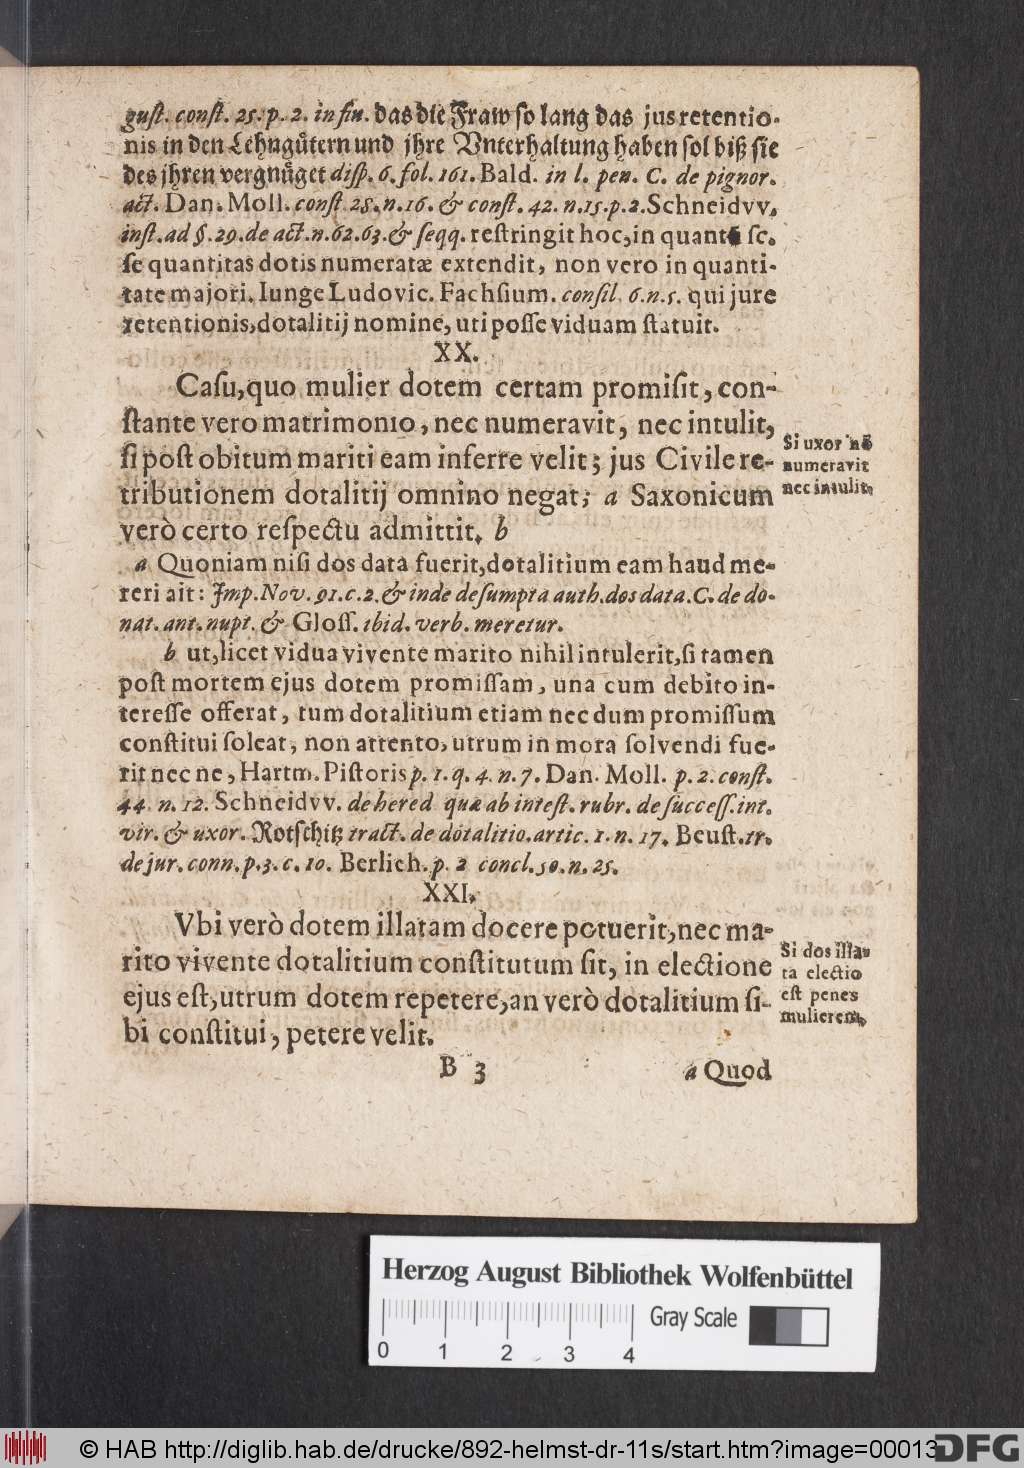 guſt. conſt. 25. p. 2. in fin. das die Fraw ſo lang das jus retentio-
nis in den Lehngütern und jhre Vnterhaltung haben ſol biß ſie
des jhren vergnüget diſp. 6. fol. 161. Bald. in l. pen. C. de pignor.
act. Dan. Moll. conſt 28. n. 16. & conſt. 42. n. 15. p. 2. Schneidvv.
inſt. ad §. 29. de act. n. 62. 63. & ſeqq. reſtringit hoc, in quantū ſc.
ſe quantitas dotis numeratæ extendit, non vero in quanti-
tate majori. Iunge Ludovic. Fachſium. conſil. 6. n. 5. qui jure
retentionis, dotalitij nomine, uti poſſe viduam ſtatuit.
XX.
Caſu, quo mulier dotem certam promiſit, con-
ſtante vero matrimonio, nec numeravit, nec intulit,
ſi poſt obitum mariti eam inferre velit; jus Civile re-
tributionem dotalitij omnino negat; a Saxonicum
verò certo reſpectu admittit. b
Si uxor nō
numeravit
nec intulit.
a Quoniam niſi dos data fuerit, dotalitium eam haud me-
reri ait: Jmp. Nov. 91. c. 2. & inde deſumpta auth. dos data. C. de do-
nat. ant. nupt. & Gloſſ. ibid. verb. meretur.
b ut, licet vidua vivente marito nihil intulerit, ſi tamen
poſt mortem ejus dotem promiſſam, una cum debito in-
tereſſe offerat, tum dotalitium etiam nec dum promiſſum
conſtitui ſoleat, non attento, utrum in mora ſolvendi fue-
rit nec ne, Hartm. Piſtoris p. 1. q. 4. n. 7. Dan. Moll. p. 2. conſt.
44. n. 12. Schneidvv. de hered quæ ab inteſt. rubr. de ſucceſſ. int.
vir. & uxor. Rotſchitz tract. de dotalitio. artic. 1. n. 17. Beuſt. tr.
de jur. conn. p. 3. c. 10. Berlich. p. 2 concl. 50. n. 25.
XXI.
Vbi verò dotem illatam docere potuerit, nec ma-
rito vivente dotalitium conſtitutum ſit, in electione
ejus eſt, utrum dotem repetere, an verò dotalitium ſi-
bi conſtitui, petere velit.
Si dos illa-
ta electio
eſt penes
mulierem.
B 3 a Quod
Herzog August Bibliothek Wolfenbüttel
Gray Scale
0 1 2 3 4
© HAB http://diglib.hab.de/drucke/892-helmst-dr-11s/start.htm?image=00013
DFG